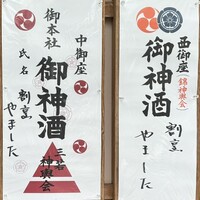 西御座
(錦神輿会)
御神酒
割烹
やました
中御座
御本社
御神酒
三若
神輿会
氏名
割烹
やました